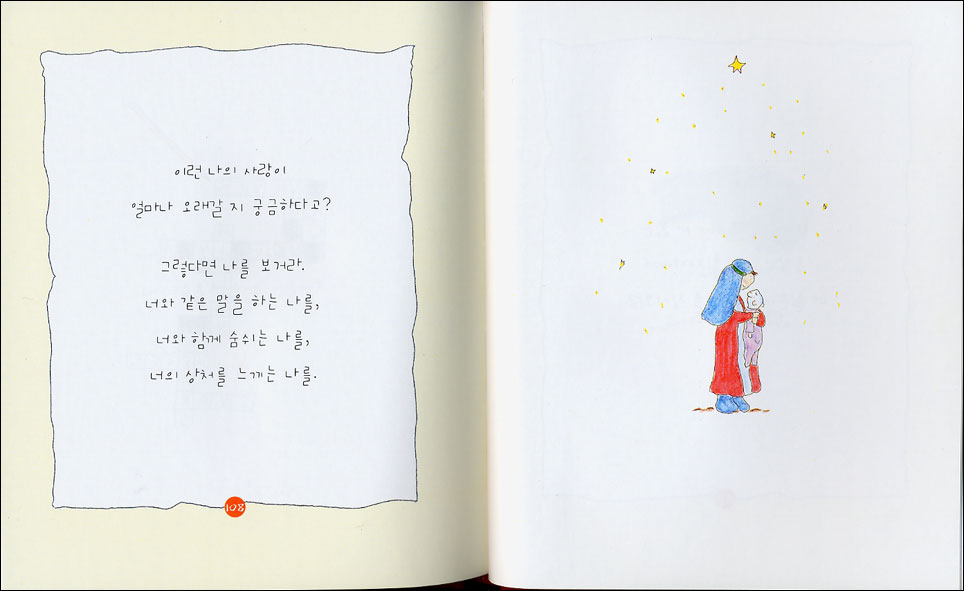 이런 나의 사랑이
얼마나 오래갈 지 궁금하다고?
그렇다면 나를 보거라.
너와 같은 말을 하는 나를,
너와 함께 숨쉬는 나를,
너의 상처를 느끼는 나를.
108